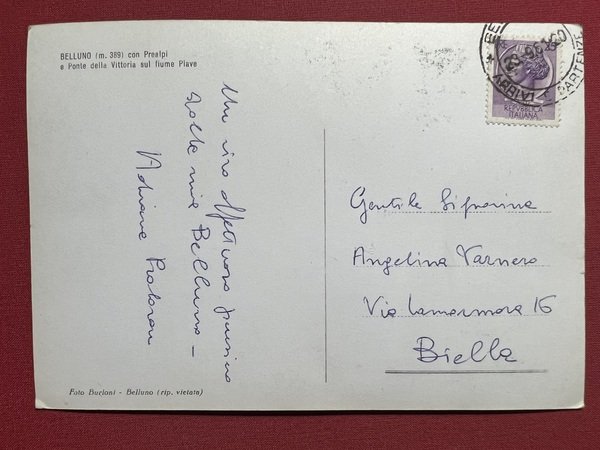 BELLUNO (m. 389) con Prealpi
e Ponte della Vittoria sul fiume Piave
Un vivo affettuoso pensiero
dalla mia Belluno -
Adriana
Gentile Signorina
Angelina Varnero
Via Lamarmora 16
Biella
REPUBBLICA
ITALIANA
ARRIVI
PARTENZE
Foto Burloni - Belluno (rip. vietata)